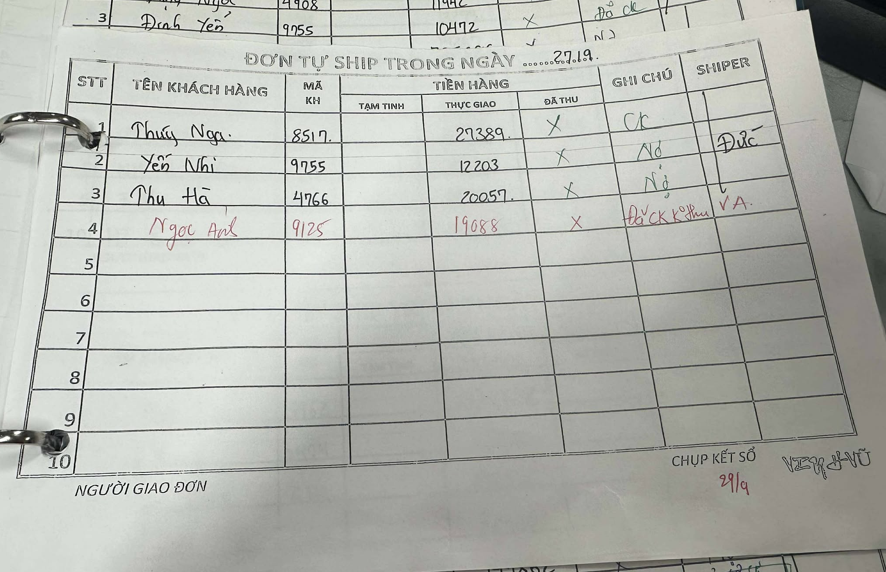 4908 11942
3 Đinh Yến 9755 10472 X Đã ck
ĐƠN TỰ SHIP TRONG NGÀY ......27.19.
STT TÊN KHÁCH HÀNG MÃ KH TIỀN HÀNG GHI CHÚ SHIPER
TẠM TINH THỰC GIAO ĐÃ THU
1 Thúy Nga. 8517. 27389. X CK
2 Yến Nhi 9755 12203 X Nợ Đức
3 Thu Hà 4766 20057. X Nợ
4 Ngọc Anh 9125 19088 X Đã CK K° thu V.A.
5
6
7
8
9
10
NGƯỜI GIAO ĐƠN CHỤP KẾT SỔ
29/9